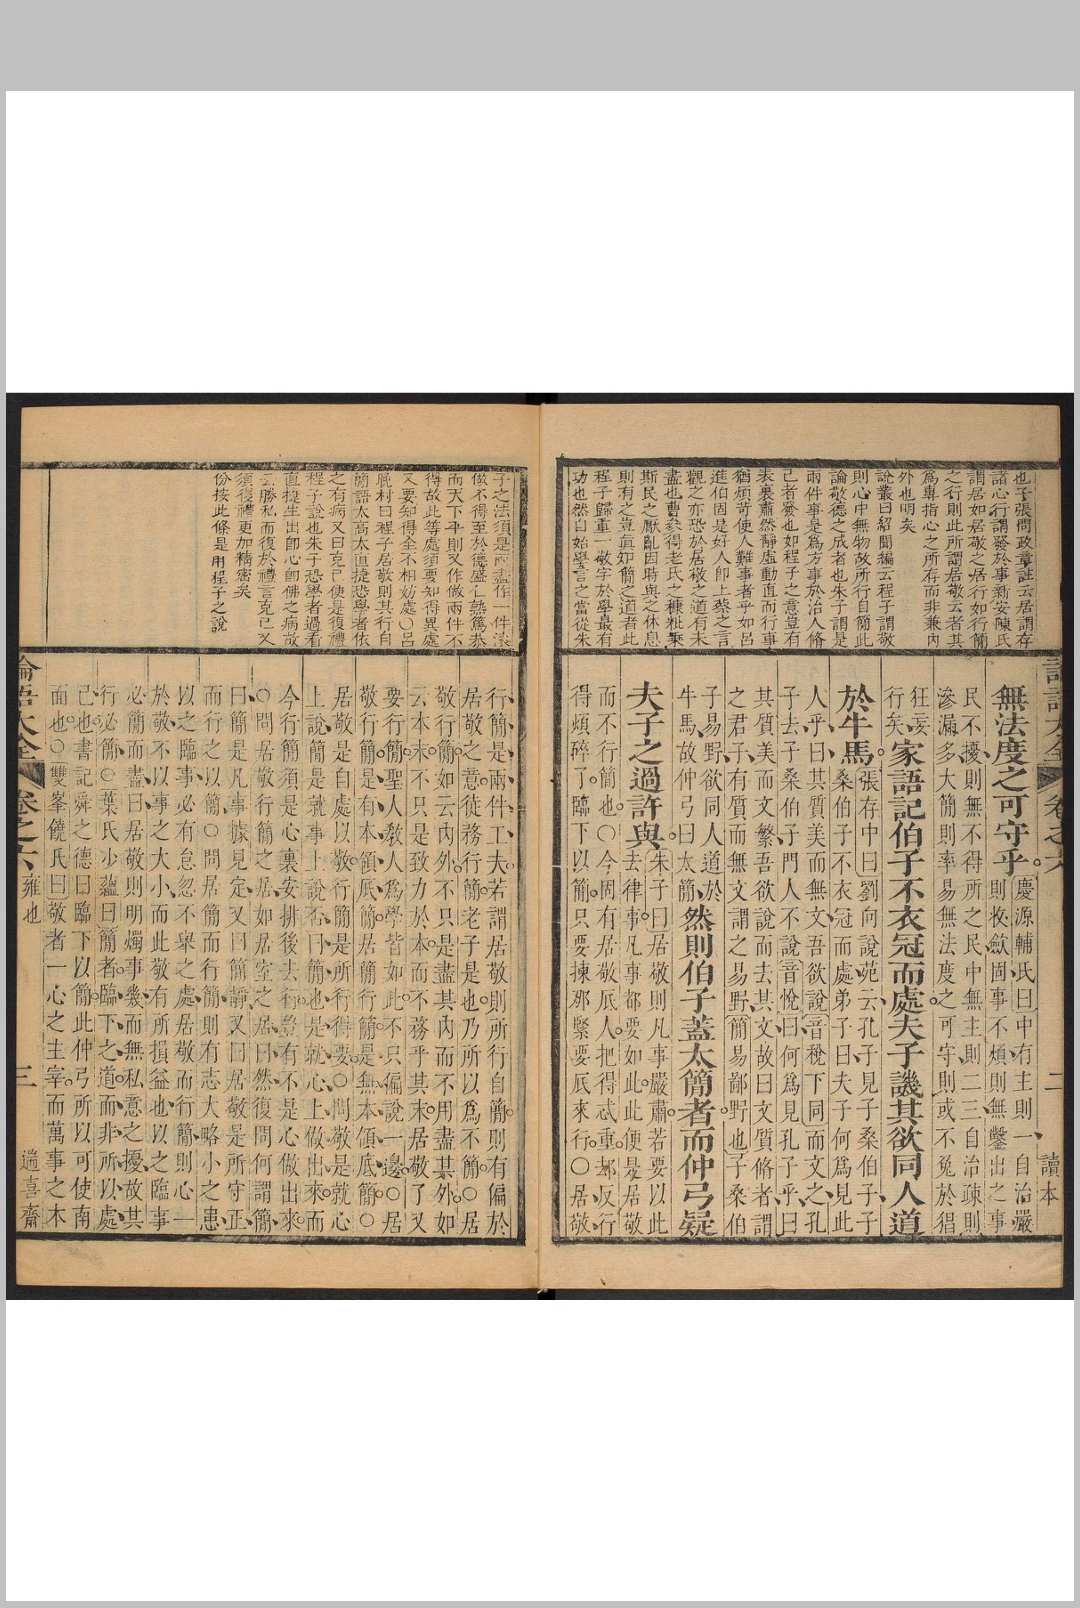 也子張問政章註云居謂存
諸心行謂發於事新安陳氏
謂居如居敬之居行如行簡
之行則此所謂居敬云者其
爲專指心之所存而非兼內
外也明矣
說叢曰紹聞編云程子謂敬
則心中無物故所行自簡此
論敬德之成者也朱子謂是
兩件事是爲方事於治人脩
己者發也如程子之意豈有
表裏肅然靜虛動直而行事
猶煩苛使人難事者乎如呂
進伯固是好人卽上蔡之言
觀之亦恐於居敬之道有未
盡也曹參得老氏之糠粃乘
斯民之厭亂因時與之休息
則有之豈眞知簡之道者此
程子歸重一敬字於學最有
功也然自始學言之當從朱
無法度之可守乎慶源輔氏曰中有主則一自治嚴
則收歛固事不煩則無鑿出之事
民不擾則無不得所之民中無主則二三自治疎則
滲漏多大簡則率易無法度之可守則或不免於猖
狂妄
行矣家語記伯子不衣冠而處夫子譏其欲同人道
於牛馬張存中曰劉向說苑云孔子見子桑伯子子
桑伯子不衣冠而處弟子曰夫子何爲見此
人乎曰其質美而無文吾欲說音稅下同而文之孔
子去子桑伯子門人不說音悅曰何爲見孔子乎曰
其質美而文繁吾欲說而去其文故曰文質脩者謂
之君子有質而無文謂之易野簡易鄙野也子桑伯
子易野欲同人道於
牛馬故仲弓曰太簡然則伯子蓋太簡者而仲弓疑
夫子之過許與朱子曰居敬則凡事嚴肅若要以此
去律事凡事都要如此此便是居敬
而不行簡也○今固有居敬底人把得忒重都反行
得煩碎了臨下以簡只要揀那緊要底來行○居敬
論語大全 卷之六 二 讀本
子之法須是兩盡作一件滾
做不得至於德盛仁熟篤恭
而天下平則又作做兩件不
得故此等處須要知得異處
又要知得全不相妨處○呂
晚村曰程子居敬則其行自
簡語太高太直捷恐學者依
之有病又曰克己便是復禮
程子說也朱子恐學者過看
直捷生出卽心卽佛之病故
云勝私而復於禮言克己又
須復禮更加精密矣
份按此條是用程子之說
行簡是兩件工夫若謂居敬則所行自簡則有偏於
居敬之意徒務行簡老子是也乃所以爲不簡○居
敬行簡如云內外不只是盡其內而不用盡其外如
云本末不只是致力於本而不務乎其末居敬了又
要行簡聖人敎人爲學皆如此不只偏說一邊○居
敬行簡是有本領底簡居簡行簡是無本領底簡○
居敬是自處以敬行簡是所行得要○問敬是就心
上說簡是就事上說否曰簡也是就心上做出來而
今行簡須是心裏安排後去行豈有不是心做出來
○問居敬行簡之居如居室之居曰然復問何謂簡
曰簡是凡事據見定又曰簡靜又曰居敬是所守正
而行之以簡○問居簡而行簡則有志大略小之患
以之臨事必有怠忽不舉之處居敬而行簡則心一
於敬不以事之大小而此敬有所損益也以之臨事
必簡而盡曰居敬則明燭事幾而無私意之擾故其
行必簡○葉氏少蘊曰簡者臨下之道而非所以處
己也書記舜之德曰臨下以簡此仲弓所以可使南
面也○雙峯饒氏曰敬者一心之主宰而萬事之本
論語大全 卷之六 雍也 三 遄喜齋